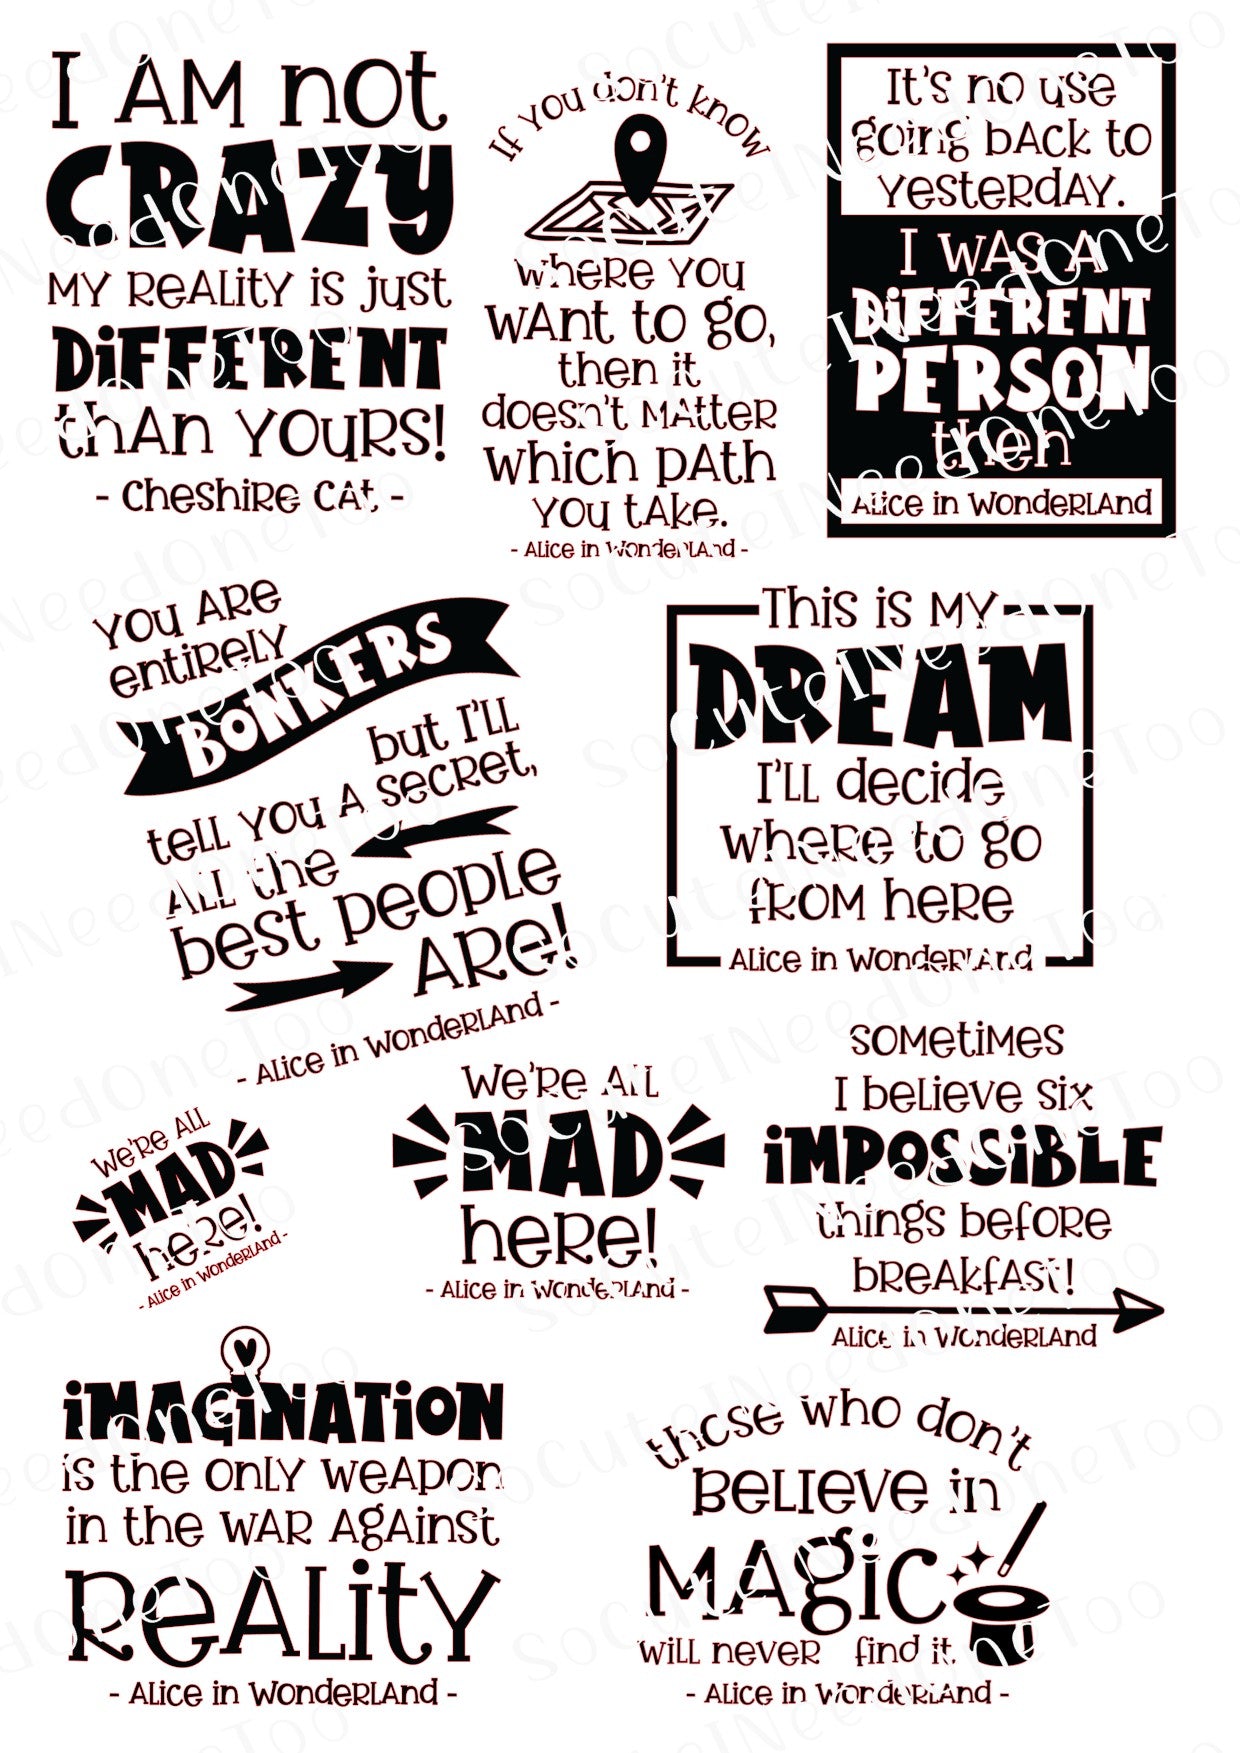 I AM not
CRAZY
MY REALITY is just
DiFFERENT
thAn YOURS!
- CHESHIRE CAt -
If YOU don't know
where YOU
WAnt to go,
then it
doesn't MAtteR
which pAth
YOU tAke.
- ALICE in WondeRLAnd -
It's no use
going bAck to
YesteRdAY.
I WAS A
DiFFERENT
PERSON
then
ALICE in WondeRLAnd
YOU ARE
entiReLY
BONKERS
but I'LL
teLL YOU A secRet,
ALL the
best peopLe
ARe!
- ALICE in WondeRLAnd -
This is MY
DREAM
I'LL decide
wheRe to go
fROM heRe
ALICE in WondeRLAnd
We'Re ALL
MAD
heRe!
- ALICE in WondeRLAnd -
We'Re ALL
MAD
heRe!
- ALICE in WondeRLAnd -
soMetiMes
I beLieve six
iMPOSSiBLE
things befoRe
bReAkfAst!
ALICE in WondeRLAnd
iMAGiNATiON
is the onLY weApon
in the WAR AgAinst
ReALitY
- ALICE in WondeRLAnd -
those who don't
BeLIeVe in
MAgic
wiLL neveR find it.
- ALICE in WondeRLAnd -
SoCuteINeedOneToo